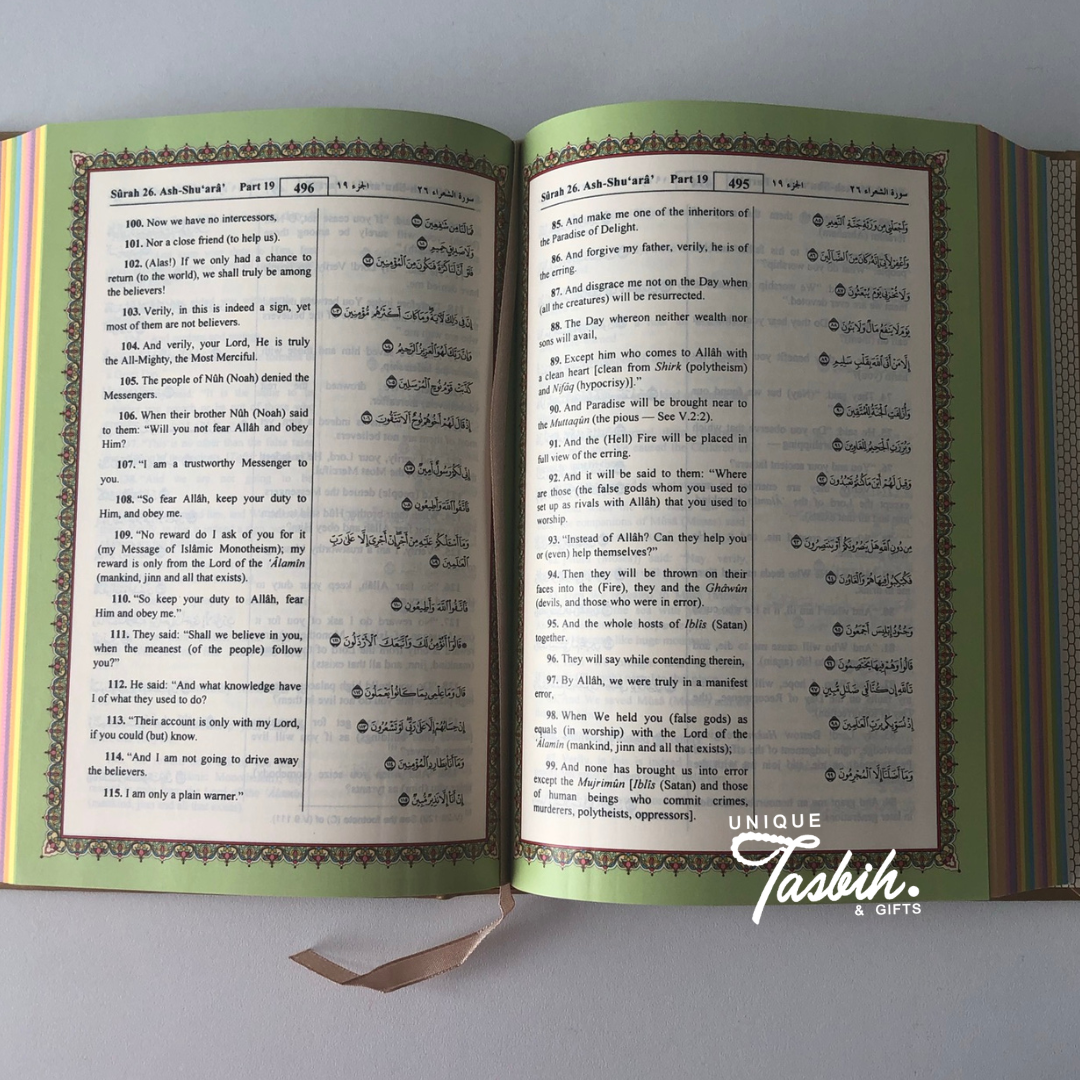 Sûrah 26. Ash-Shu‘arâ’ Part 19 495 الجزء ١٩ سورة الشعراء ٢٦
85. And make me one of the inheritors of
the Paradise of Delight.
86. And forgive my father, verily, he is of
the erring.
87. And disgrace me not on the Day when
(all the creatures) will be resurrected.
88. The Day whereon neither wealth nor
sons will avail,
89. Except him who comes to Allâh with
a clean heart [clean from Shirk (polytheism)
and Nifâq (hypocrisy)].”
90. And Paradise will be brought near to
the Muttaqûn (the pious — See V.2:2).
91. And the (Hell) Fire will be placed in
full view of the erring.
92. And it will be said to them: “Where
are those (the false gods whom you used to
set up as rivals with Allâh) that you used to
worship.
93. “Instead of Allâh? Can they help you
or (even) help themselves?”
94. Then they will be thrown on their
faces into the (Fire), they and the Ghâwûn
(devils, and those who were in error).
95. And the whole hosts of Iblîs (Satan)
together.
96. They will say while contending therein,
97. By Allâh, we were truly in a manifest
error,
98. When We held you (false gods) as
equals (in worship) with the Lord of the
‘Âlamîn (mankind, jinn and all that exists);
99. And none has brought us into error
except the Mujrimûn [Iblîs (Satan) and those
of human beings who commit crimes,
murderers, polytheists, oppressors].
وَٱجْعَلْنِى مِن وَرَثَةِ جَنَّةِ ٱلنَّعِيمِ
وَٱغْفِرْ لِأَبِىٓ إِنَّهُۥ كَانَ مِنَ ٱلضَّآلِّينَ
وَلَا تُخْزِنِى يَوْمَ يُبْعَثُونَ
يَوْمَ لَا يَنفَعُ مَالٌ وَلَا بَنُونَ
إِلَّا مَنْ أَتَى ٱللَّهَ بِقَلْبٍ سَلِيمٍ
وَأُزْلِفَتِ ٱلْجَنَّةُ لِلْمُتَّقِينَ
وَبُرِّزَتِ ٱلْجَحِيمُ لِلْغَاوِينَ
وَقِيلَ لَهُمْ أَيْنَ مَا كُنتُمْ تَعْبُدُونَ
مِن دُونِ ٱللَّهِ هَلْ يَنصُرُونَكُمْ أَوْ يَنتَصِرُونَ
فَكُبْكِبُوا۟ فِيهَا هُمْ وَٱلْغَاوُۥنَ
وَجُنُودُ إِبْلِيسَ أَجْمَعُونَ
قَالُوا۟ وَهُمْ فِيهَا يَخْتَصِمُونَ
تَٱللَّهِ إِن كُنَّا لَفِى ضَلَٰلٍ مُّبِينٍ
إِذْ نُسَوِّيكُم بِرَبِّ ٱلْعَٰلَمِينَ
وَمَآ أَضَلَّنَآ إِلَّا ٱلْمُجْرِمُونَ
Sûrah 26. Ash-Shu‘arâ’ Part 19 496 الجزء ١٩ سورة الشعراء ٢٦
100. Now we have no intercessors,
101. Nor a close friend (to help us).
102. (Alas!) If we only had a chance to
return (to the world), we shall truly be among
the believers!
103. Verily, in this is indeed a sign, yet
most of them are not believers.
104. And verily, your Lord, He is truly
the All-Mighty, the Most Merciful.
105. The people of Nûh (Noah) denied the
Messengers.
106. When their brother Nûh (Noah) said
to them: “Will you not fear Allâh and obey
Him?
107. “I am a trustworthy Messenger to
you.
108. “So fear Allâh, keep your duty to
Him, and obey me.
109. “No reward do I ask of you for it
(my Message of Islâmic Monotheism); my
reward is only from the Lord of the ‘Âlamîn
(mankind, jinn and all that exists).
110. “So keep your duty to Allâh, fear
Him and obey me.”
111. They said: “Shall we believe in you,
when the meanest (of the people) follow
you?”
112. He said: “And what knowledge have
I of what they used to do?
113. “Their account is only with my Lord,
if you could (but) know.
114. “And I am not going to drive away
the believers.
115. I am only a plain warner.”
فَمَا لَنَا مِن شَٰفِعِينَ
وَلَا صَدِيقٍ حَمِيمٍ
فَلَوْ أَنَّ لَنَا كَرَّةً فَنَكُونَ مِنَ ٱلْمُؤْمِنِينَ
إِنَّ فِى ذَٰلِكَ لَءَايَةً وَمَا كَانَ أَكْثَرُهُم مُّؤْمِنِينَ
وَإِنَّ رَبَّكَ لَهُوَ ٱلْعَزِيزُ ٱلرَّحِيمُ
كَذَّبَتْ قَوْمُ نُوحٍ ٱلْمُرْسَلِينَ
إِذْ قَالَ لَهُمْ أَخُوهُمْ نُوحٌ أَلَا تَتَّقُونَ
إِنِّى لَكُمْ رَسُولٌ أَمِينٌ
فَٱتَّقُوا۟ ٱللَّهَ وَأَطِيعُونِ
وَمَآ أَسْـَٔلُكُمْ عَلَيْهِ مِنْ أَجْرٍ إِنْ أَجْرِىَ إِلَّا عَلَىٰ رَبِّ
ٱلْعَٰلَمِينَ
فَٱتَّقُوا۟ ٱللَّهَ وَأَطِيعُونِ
قَالُوٓا۟ أَنُؤْمِنُ لَكَ وَٱتَّبَعَكَ ٱلْأَرْذَلُونَ
قَالَ وَمَا عِلْمِى بِمَا كَانُوا۟ يَعْمَلُونَ
إِنْ حِسَابُهُمْ إِلَّا عَلَىٰ رَبِّى لَوْ تَشْعُرُونَ
وَمَآ أَنَا۠ بِطَارِدِ ٱلْمُؤْمِنِينَ
إِنْ أَنَا۠ إِلَّا نَذِيرٌ مُّبِينٌ
UNIQUE
Tasbih.
& GIFTS